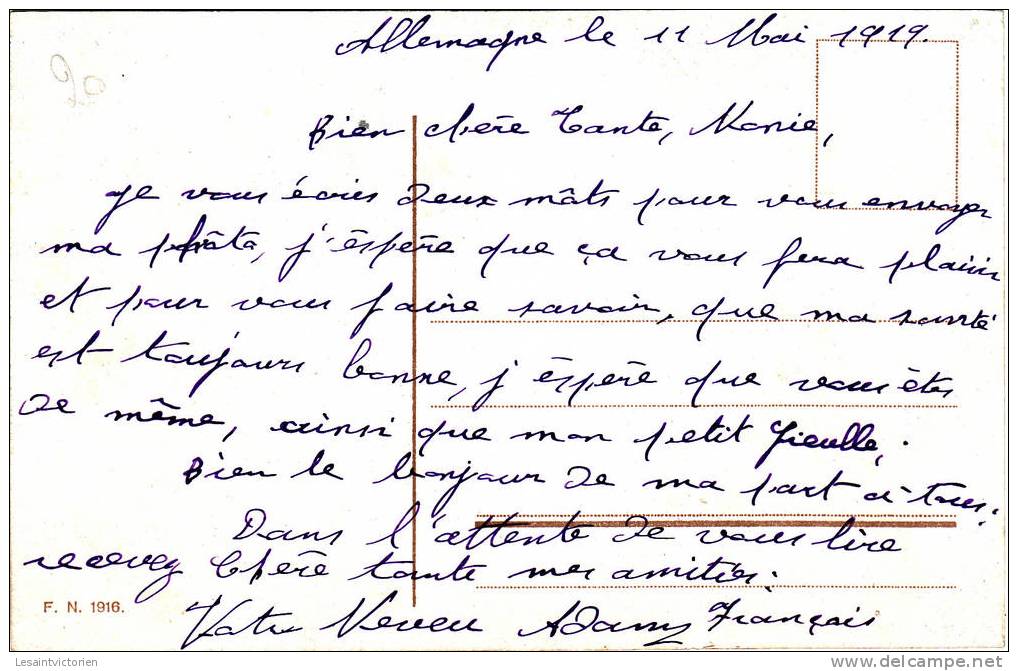 20
Allemagne le 11 Mai 1919.
Bien chère Tante, Marie,
Je vous écris deux mâts pour vous envoyer
ma phâta, j'éspère que ça vous fera plaisir
et pour vous faire savoir, que ma santé
est toujours bonne, j'éspère que vous êtes
de même, ainsi que mon petit Fieulle,.
Bien le bonjour de ma part à tous.
Dans l'attente de vous lire
recevez Chère tante mes amitiés.
Votre Neveu Adam François
F. N. 1916.
Lesaintvictorien
delcampe.net